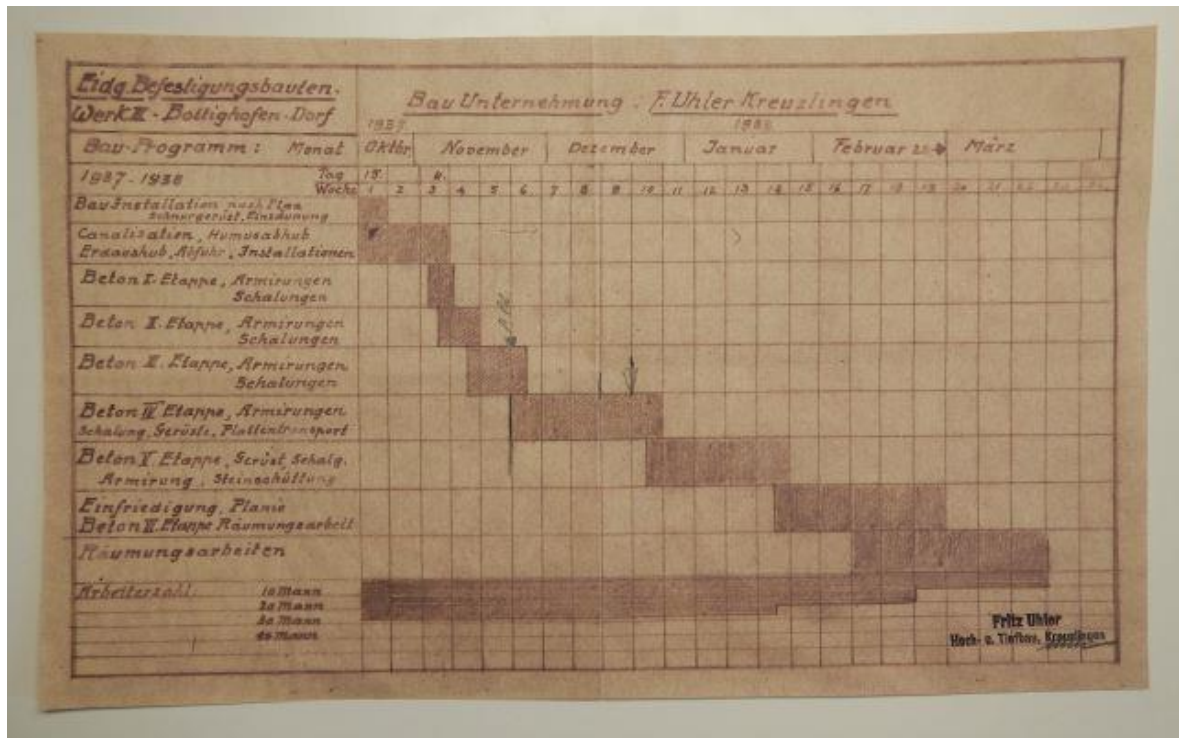 Eidg. Befestigungsbauten.
Werk II - Bottighofen-Dorf
Bau Unternehmung : F. Uhler Kreuzlingen
1937 1938
Bau-Programm : Monat Oktbr November Dezember Januar Februar März
1937-1938 Tag 15.
Woche 1 2 3 4 5 6 7 8 9 10 11 12 13 14 15 16 17 18 19 20 21 22
Bau Installation nach Plan
Schnurgerüst, Einzäunung
Canalisation, Humusabhub
Erdaushub, Abfuhr, Installationen
Beton I. Etappe, Armirungen
Schalungen
Beton II. Etappe, Armirungen
Schalungen
Beton III. Etappe, Armirungen
Schalungen
Beton IV Etappe, Armirungen
Schalung, Gerüste, Plattentransport
Beton V. Etappe, Gerüst, Schalg.
Armirung, Steinschüttung
Einfriedigung, Planie
Beton VI. Etappe Räumungsarbeit
Räumungsarbeiten
Arbeiterzahl: 10 Mann
20 Mann
30 Mann
40 Mann
Fritz Uhler
Hoch- u. Tiefbau, Kreuzlingen